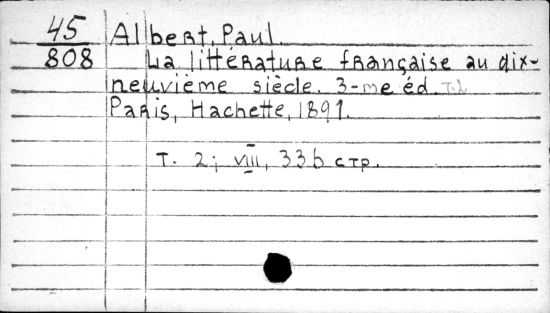 45 Albert, Paul.
808 La littérature française au dix-
neuvième siècle. 3-me éd. T.1
Paris, Hachette, 1891.
T. 2; VIII, 336 стр.